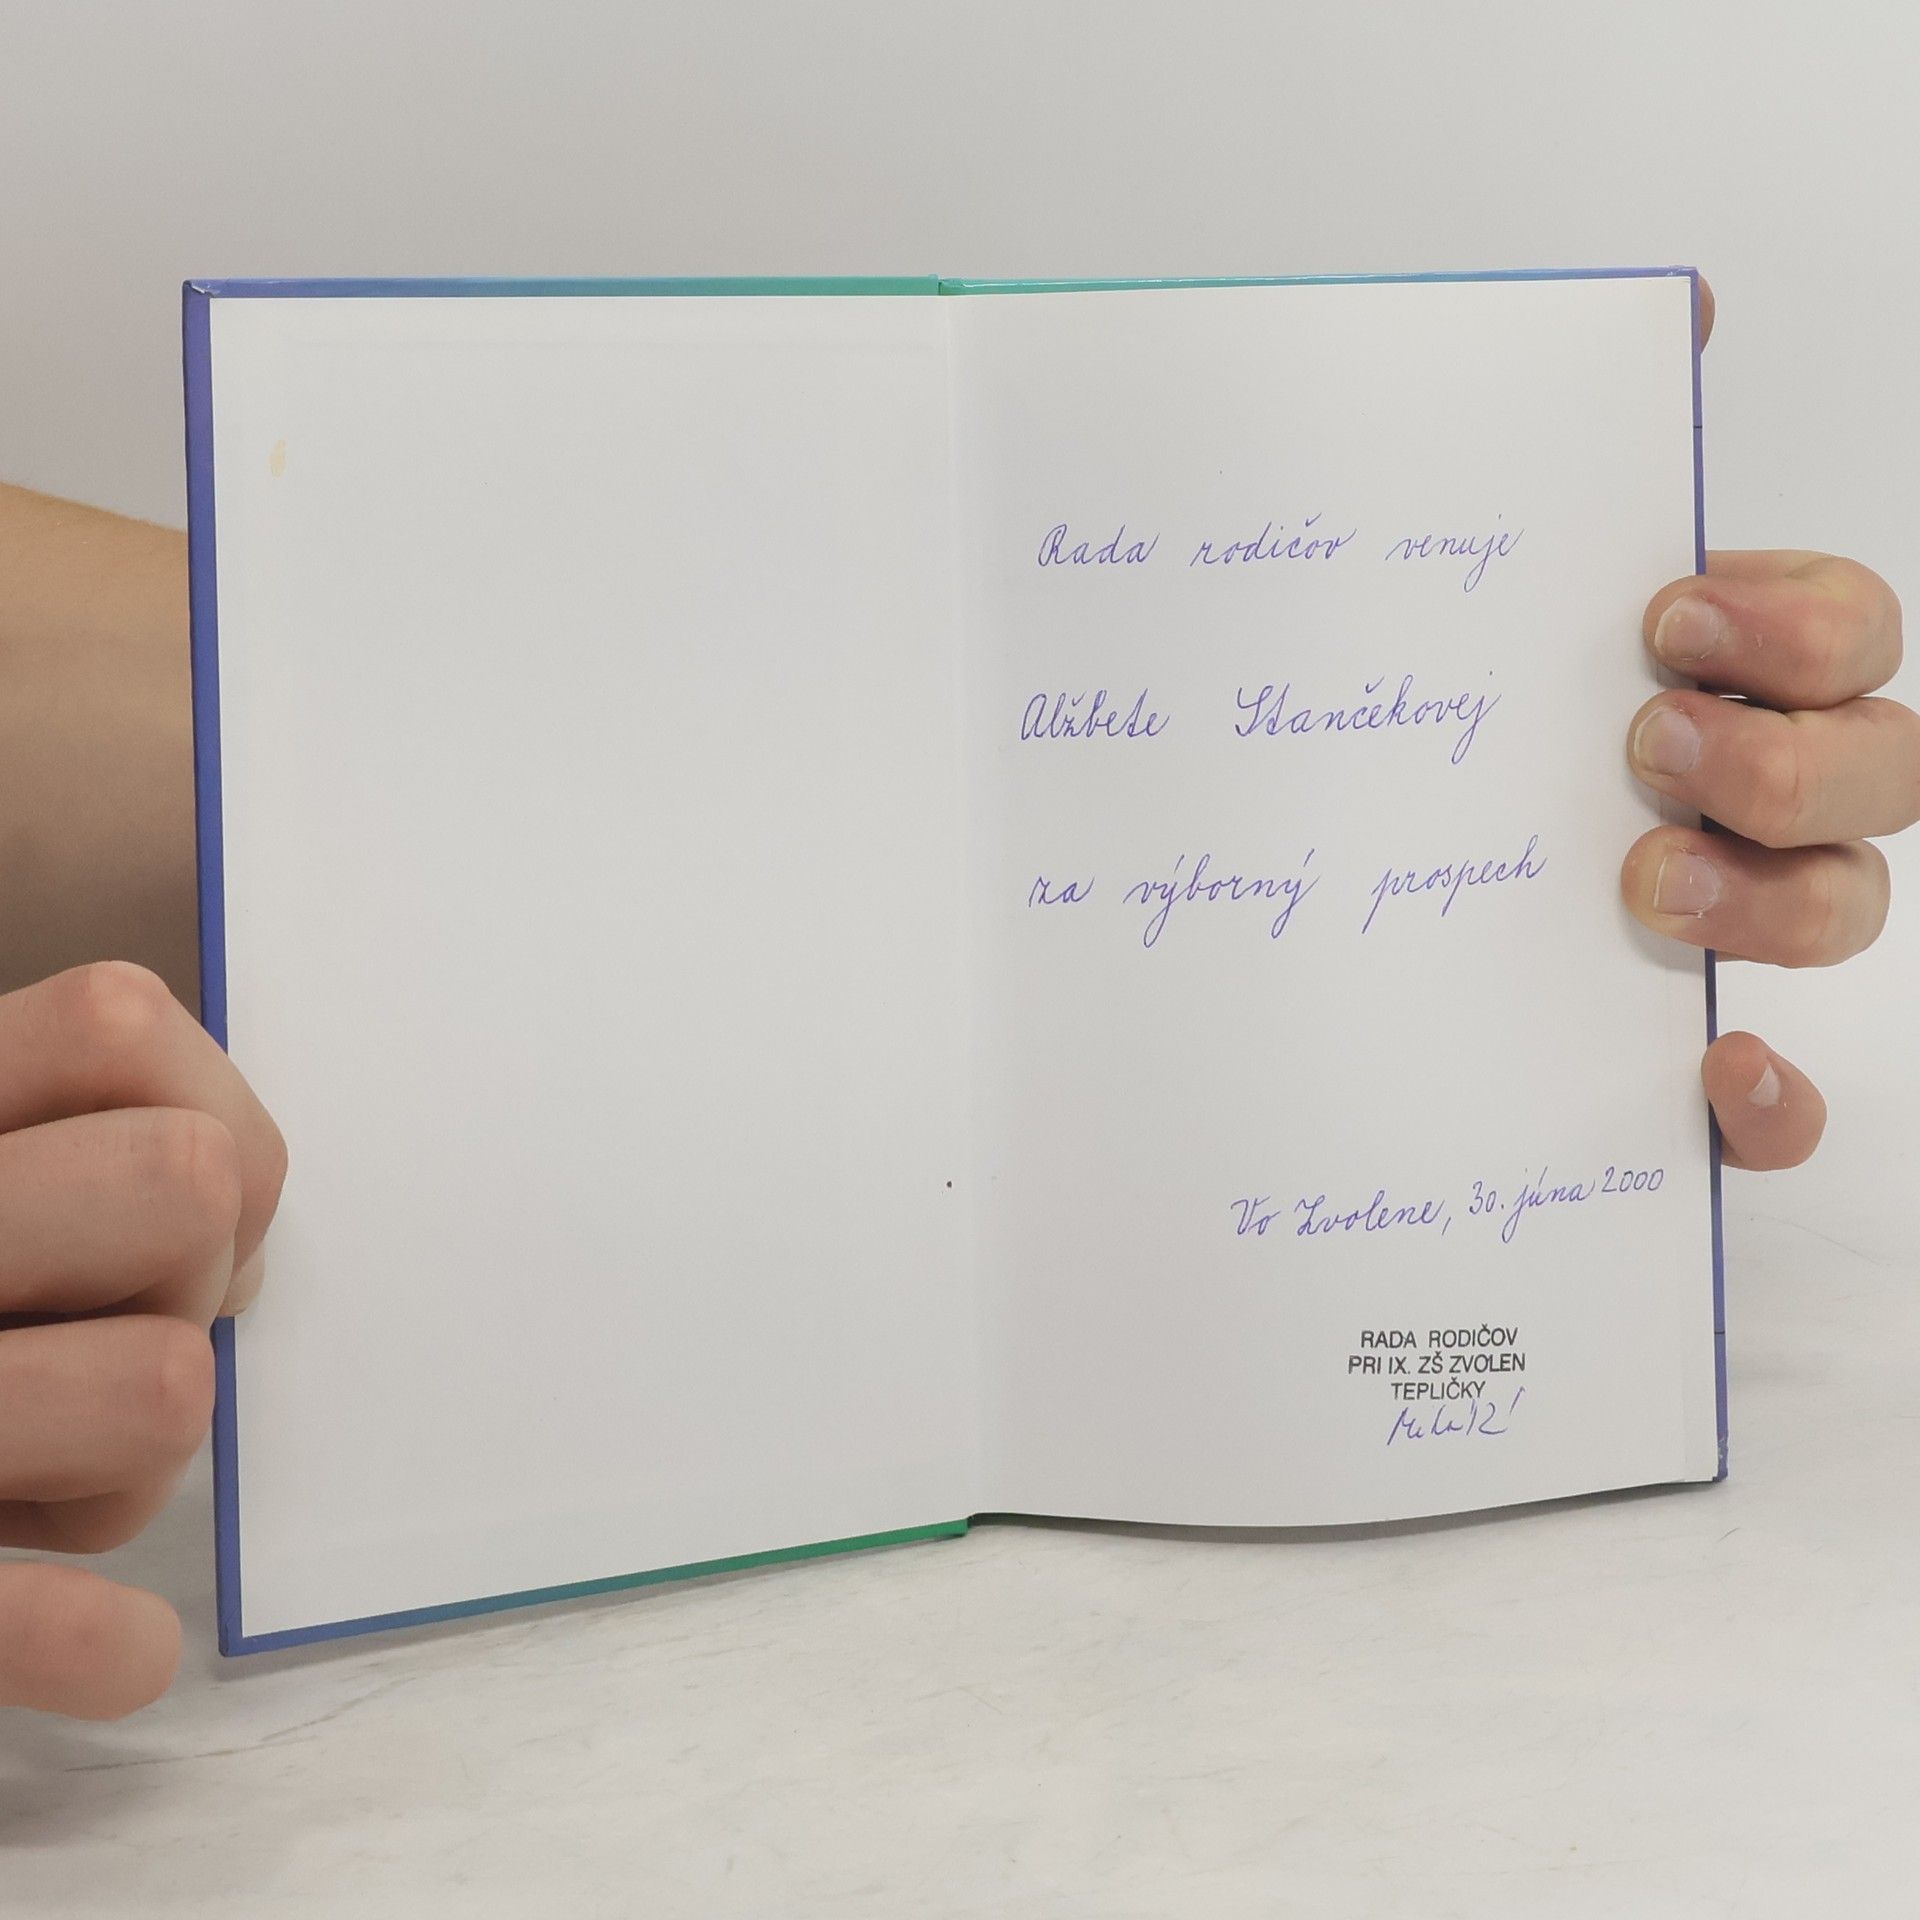 Rada rodičov venuje
Alžbete Stančekovej
za výborný prospech
Vo Zvolene, 30. júna 2000
RADA RODIČOV
PRI IX. ZŠ ZVOLEN
TEPLIČKY